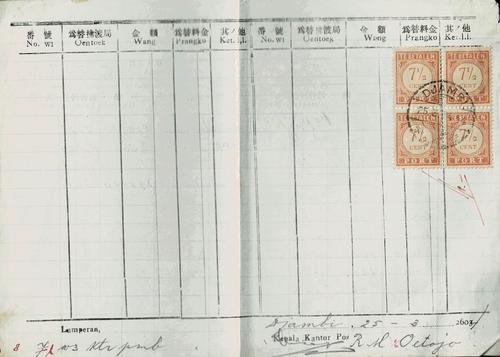 番號 爲替拂渡局 金額 爲替料金 其ノ他 番號 爲替拂渡局 金額 爲替料金 其ノ他
No. wi Oentoek Wang Prangko Ket. l.l. No. wi Oentoek Wang Prangko Ket. l.l.
TE BETALEN TE BETALEN
7½ 7½
CENT CENT
TE BETALEN TE BETALEN
7½ 7½
CENT CENT
PORT PORT
DJAMBI
Lamperan,
Djambi 25 - 3 2603
Kepala Kantor Pos
R.M. Oetojo
3